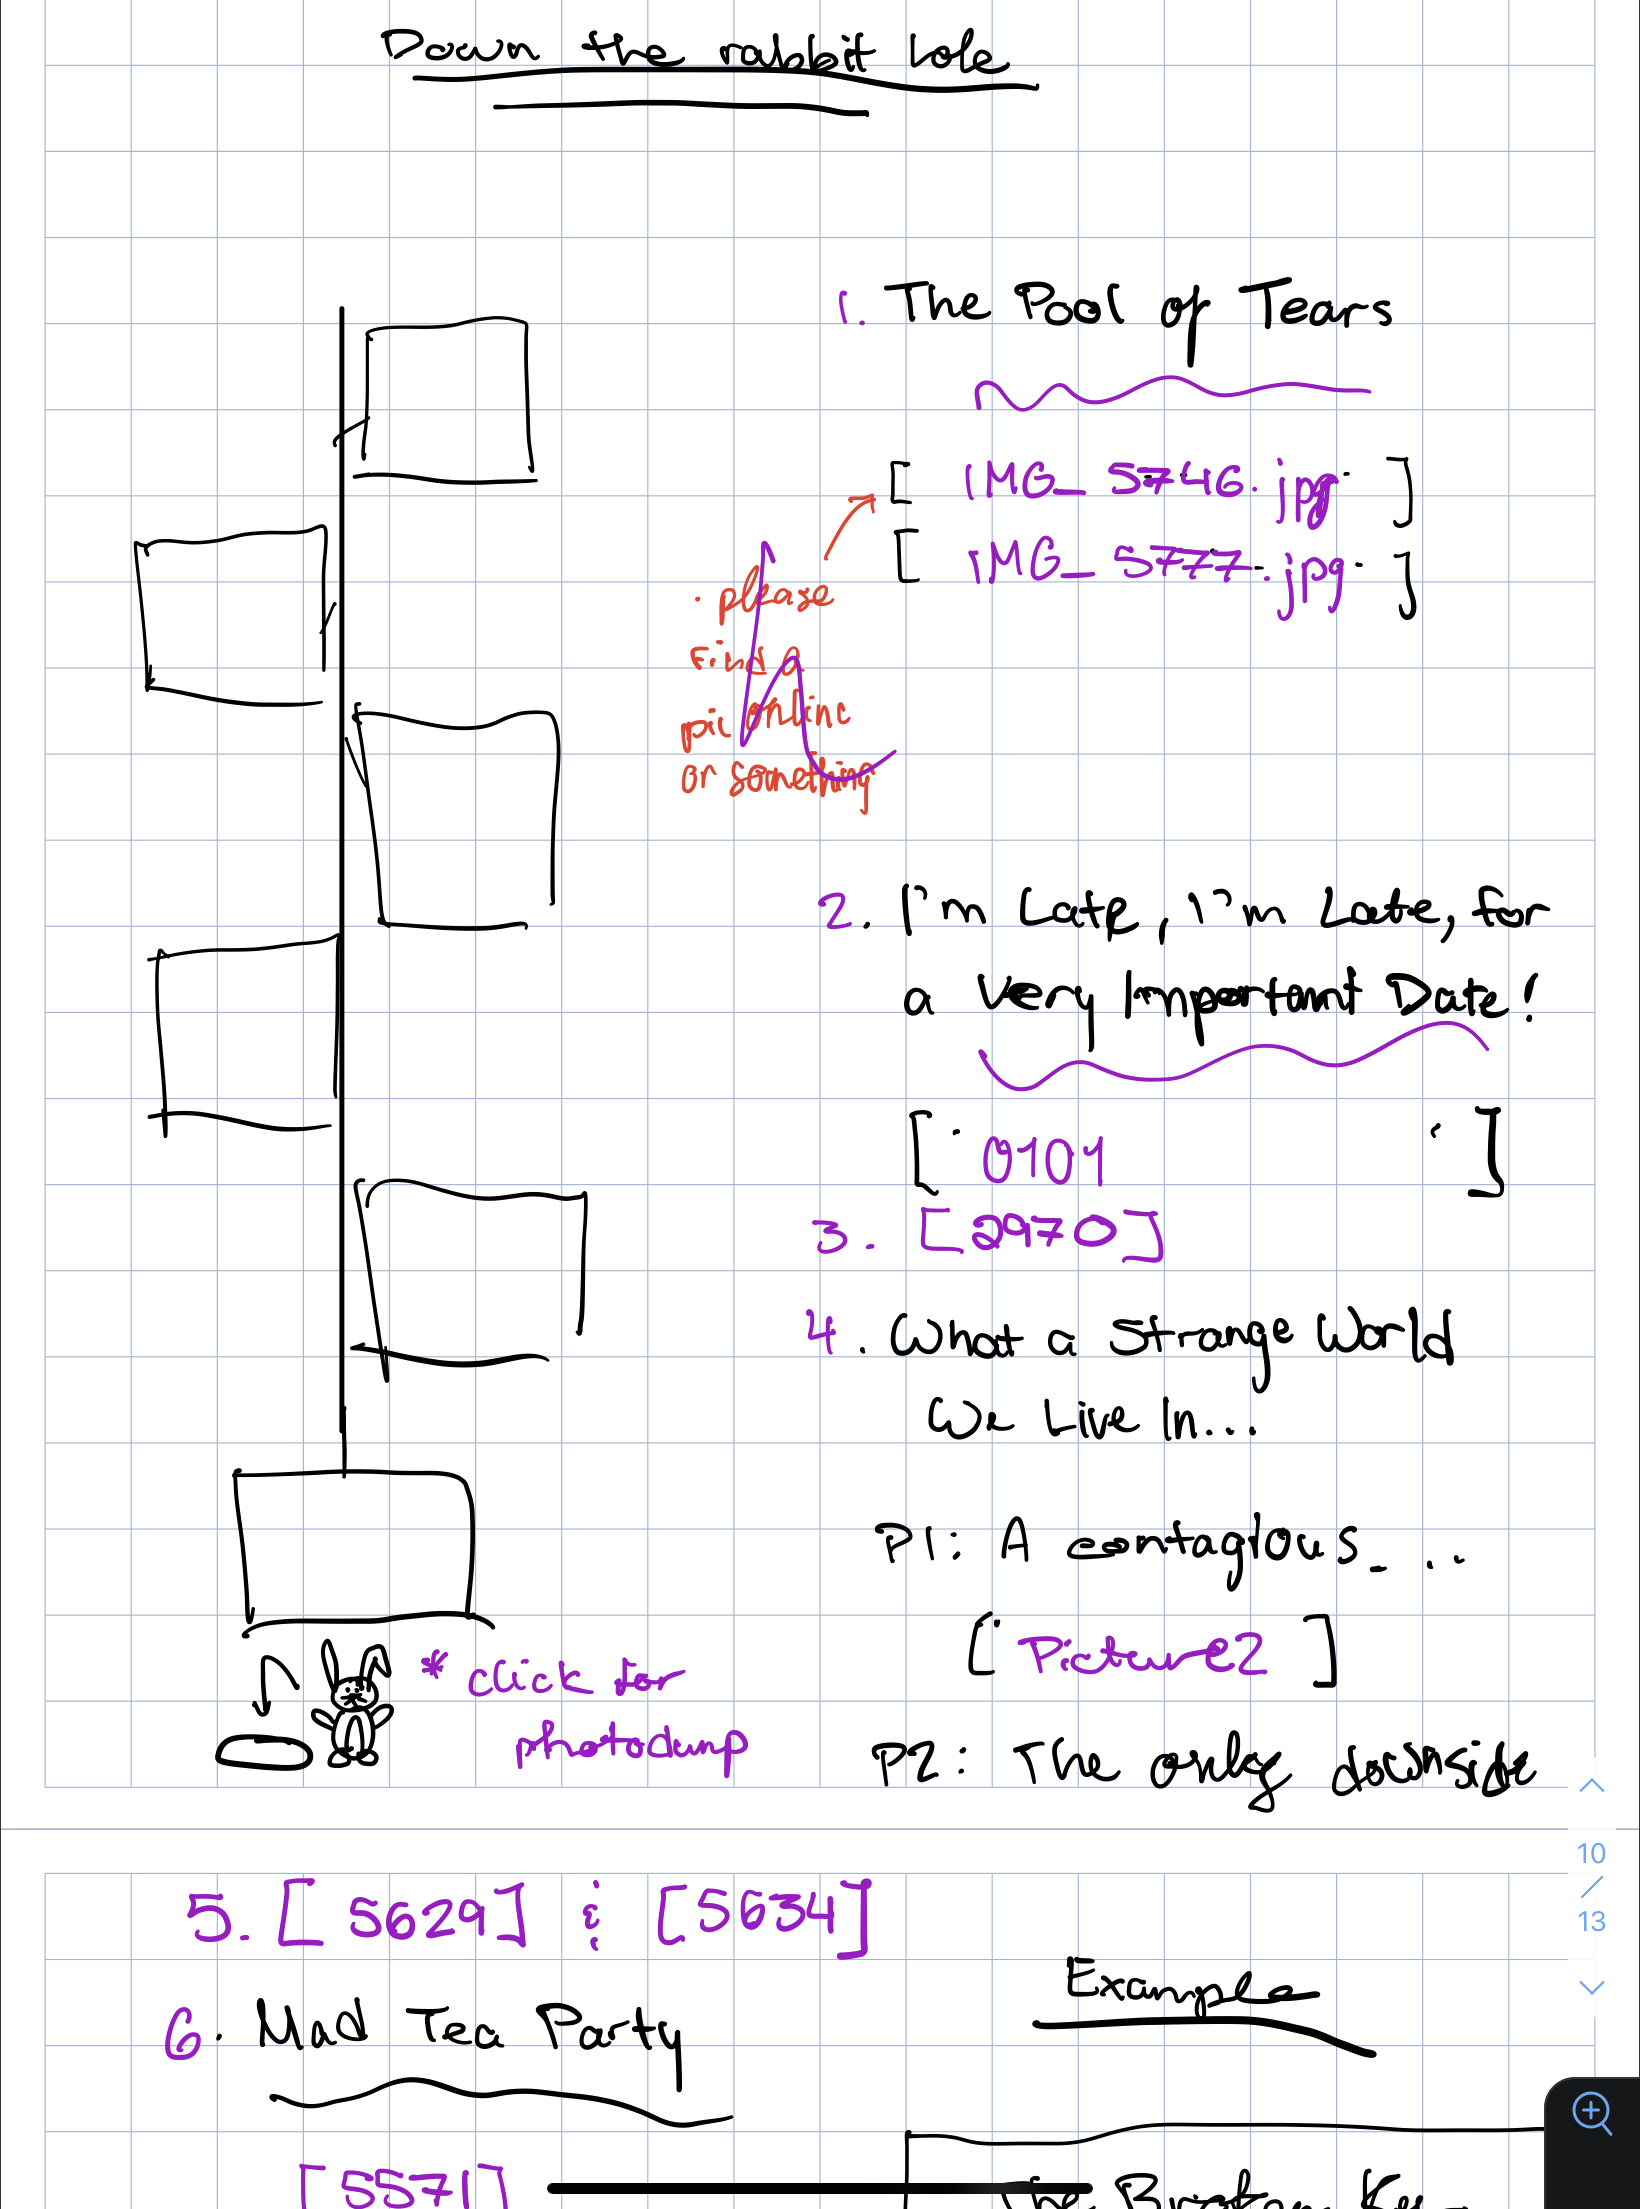 Down the rabbit hole
1. The Pool of Tears
[ IMG_5746.jpg ]
[ IMG_5777.jpg ]
· please
find a
pic online
or something
2. I'm Late, I'm Late, for
a Very Important Date!
[ 0101 ]
3. [2970]
4. What a Strange World
We Live In...
P1: A contagious_ ..
[ Picture2 ]
P2: The only downside
* click for
photodump
10
/
13
5. [ 5629] & [5634]
6. Mad Tea Party
[5571]
Example
The